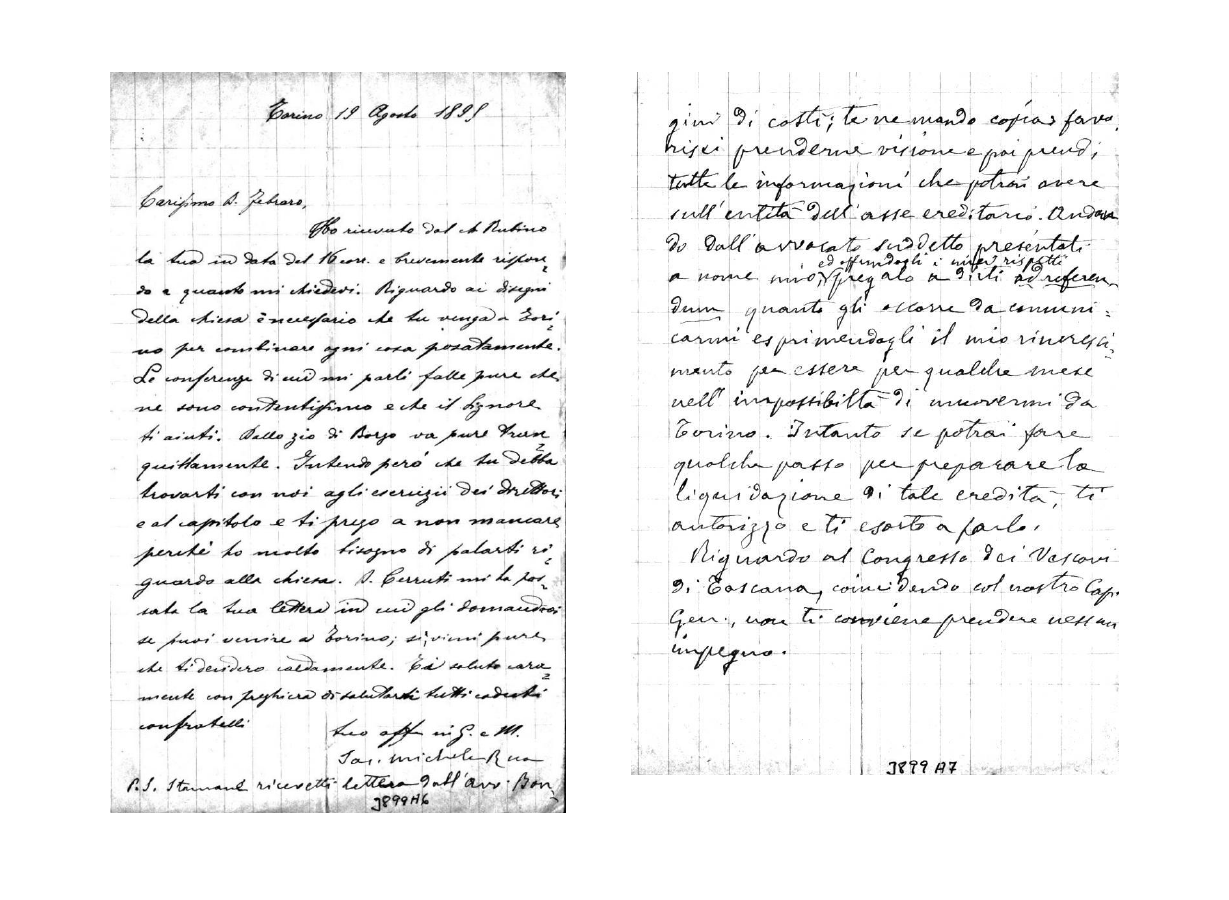 Torino 19 Agosto 1895
Carissimo D. Febraro,
Ho ricevuto dal ch Rubino
la tua in data del 16 corr. e brevemente rispon=
do a quanto mi chiedevi. Riguardo ai disegni
della chiesa è necessario che tu venga a Tori=
no per combinare ogni cosa posatamente.
Le conferenze di cui mi parli falle pure che
ne sono contentissimo e che il Signore
ti aiuti. Dallo zio di Borgo va pure tran=
quillamente. Intendo però che tu debba
trovarti con noi agli esercizii dei direttori
e al capitolo e ti prego a non mancare
perché ho molto bisogno di parlarti ri=
guardo alla chiesa. D. Cerruti mi ha pas=
sata la tua lettera in cui gli domandavi
se puoi venire a Torino; sì, vieni pure,
che ti desidero caldamente. Ti saluto cara=
mente con preghiera di salutarti tutti codesti
confratelli
tuo aff in G. e M.
Sac. Michele Rua
P.S. Stamane ricevetti lettera dall'avv. Bon=
J899A6
gini di costì; te ne mando copia; favo=
risci prenderne visione e poi prendi
tutte le informazioni che potrai avere
sull'entità dell'asse ereditario. Andan
do dall'avvocato suddetto presentati
ed offrendogli i miei rispetti
a nome mio, pregalo a dirti ad referen
dum quanto gli occorre da comuni=
carmi esprimendogli il mio rincresci=
mento per essere per qualche mese
nell'impossibiltà di muovermi da
Torino. Intanto se potrai fare
qualche passo per preparare la
liquidazione di tale eredità, ti
autorizzo e ti esorto a farlo.
Riguardo al Congresso dei Vescovi
di Toscana, coincidendo col nostro Cap.
Gen., non ti conviene prendere nessun
impegno.
J899A7